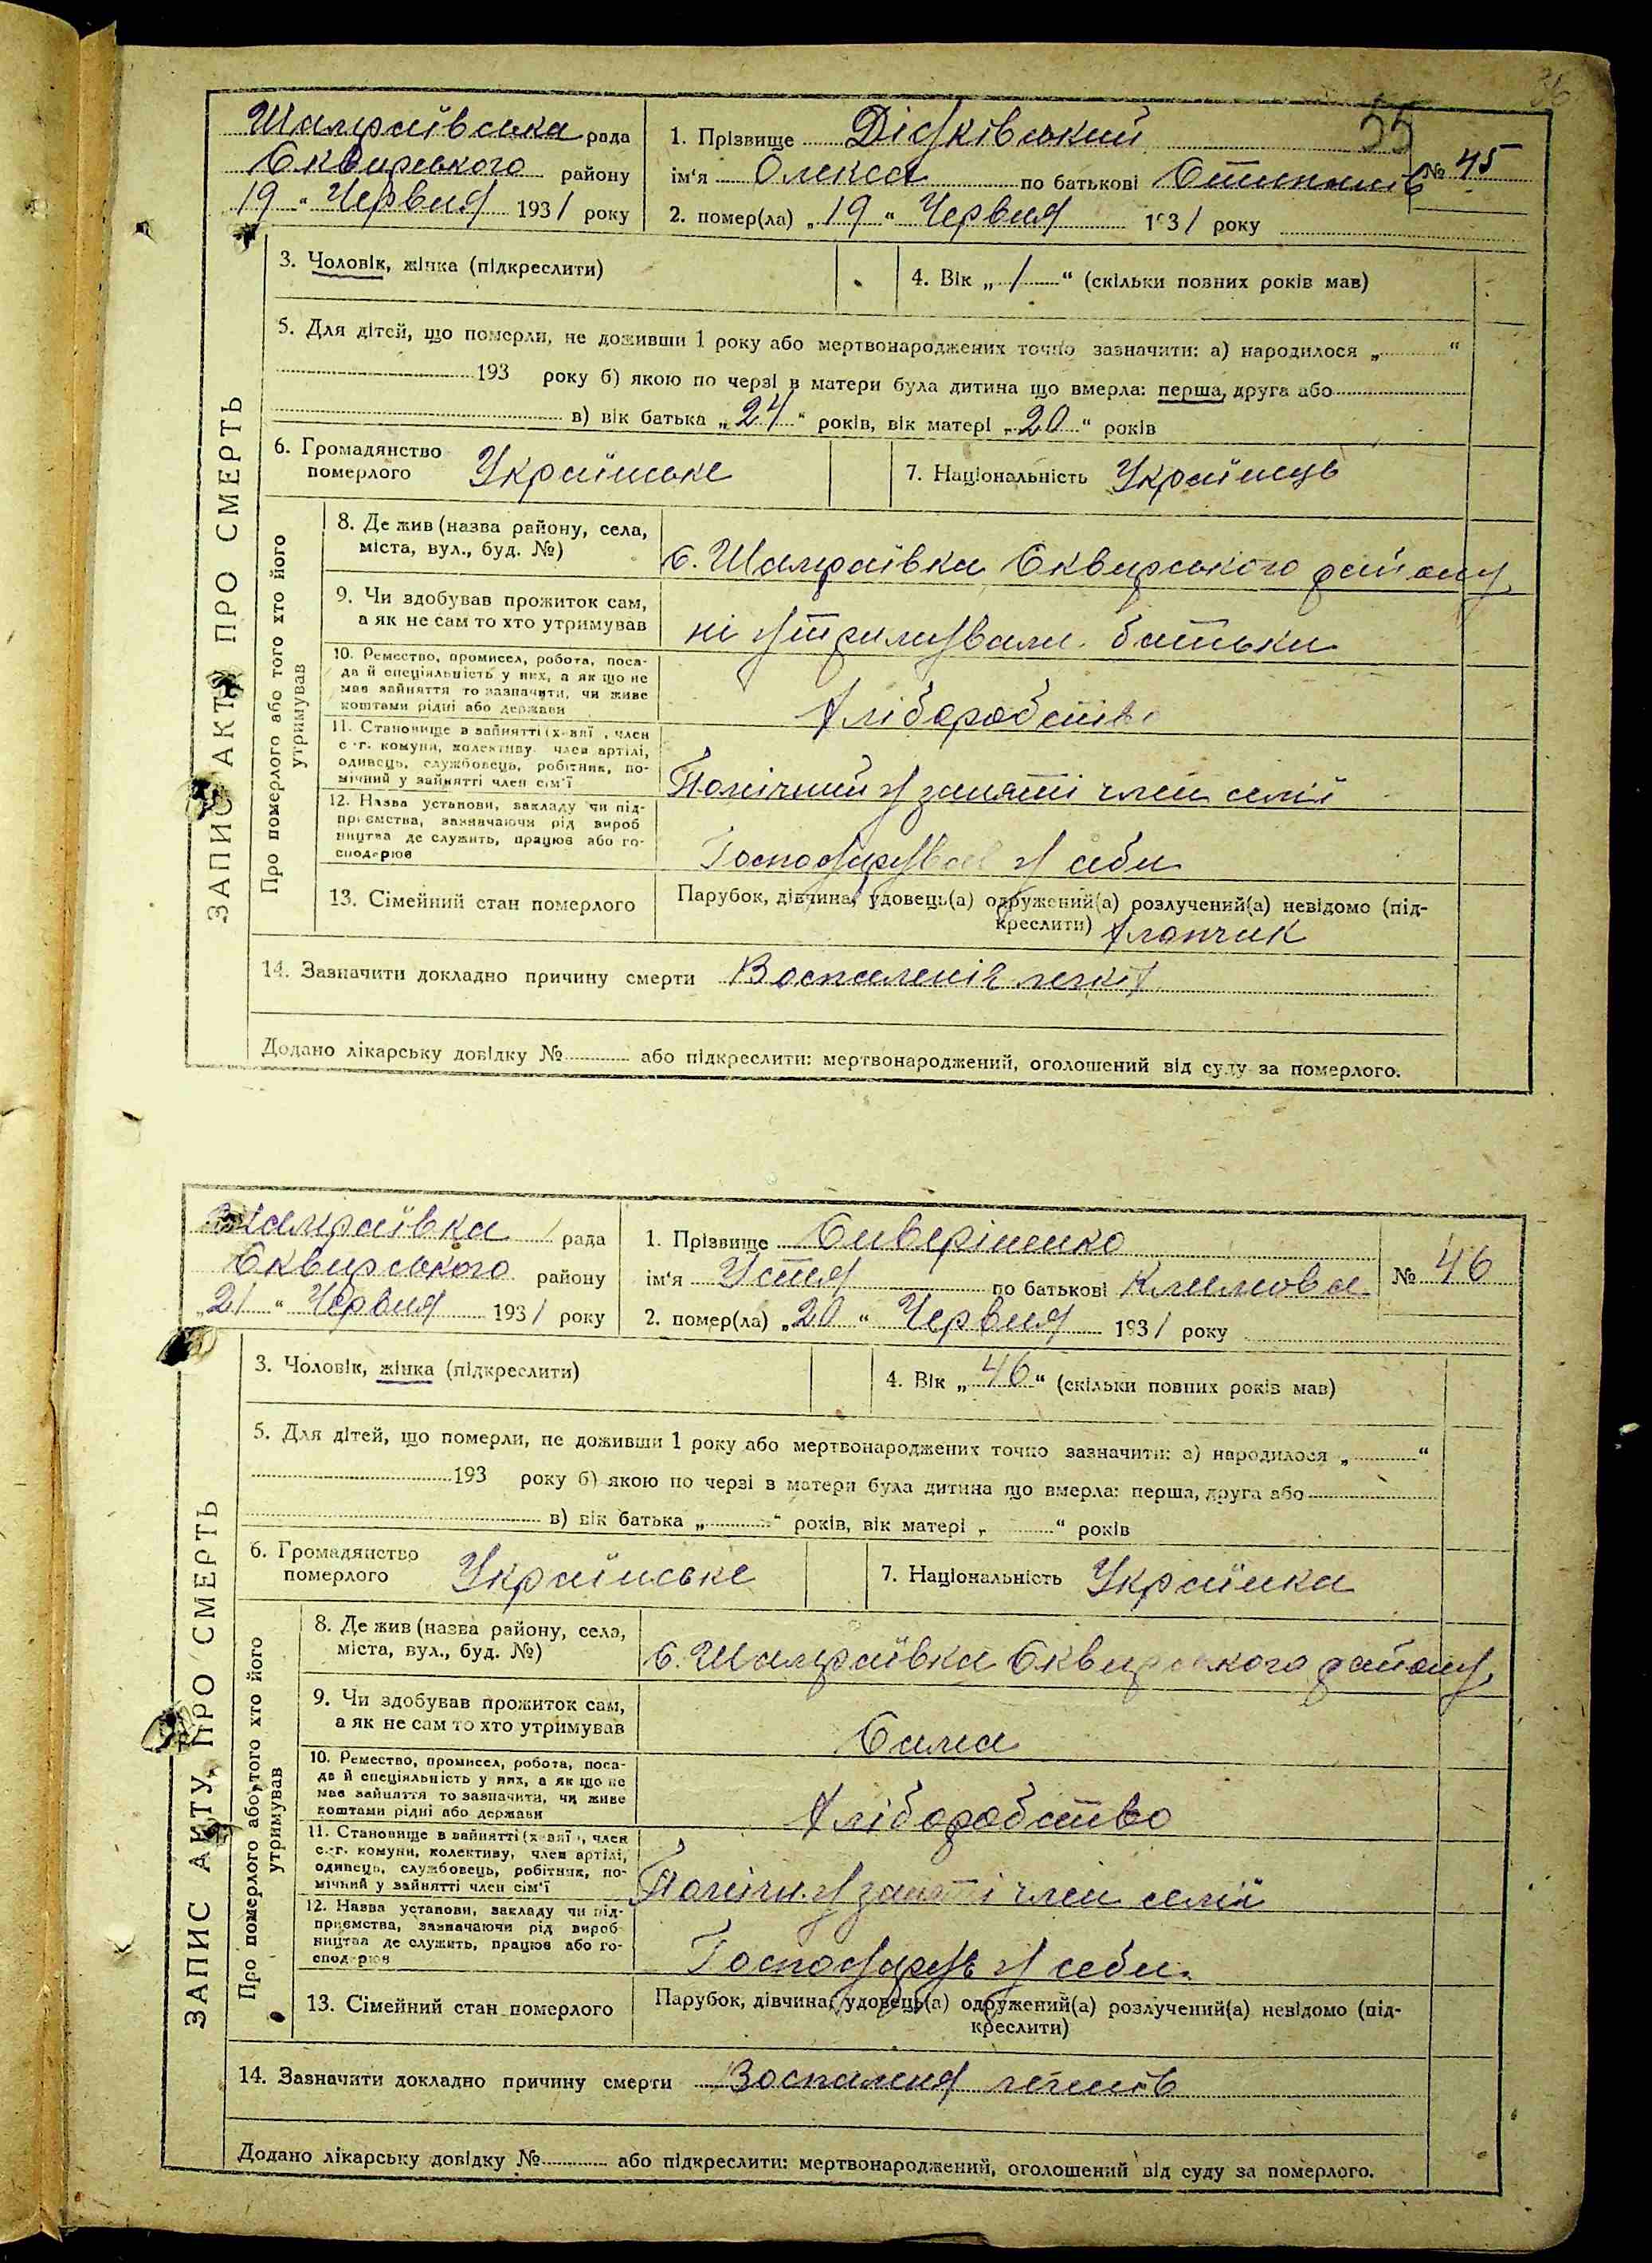 36
55
Шамраївська рада
Сквирського району
19 " Червня 1931 року
1. Прізвище Дідківський
ім'я Олекса по батькові Степанів № 45
2. помер(ла) „ 19 " Червня 1931 року
ЗАПИС АКТУ ПРО СМЕРТЬ
3. Чоловік, жінка (підкреслити)
4. Вік „ 1 " (скільки повних років мав)
5. Для дітей, що померли, не доживши 1 року або мертвонароджених точно зазначити: а) народилося „ "
193 року б) якою по черзі в матери була дитина що вмерла: перша, друга або
в) вік батька „ 24 " років, вік матері „ 20 " років
6. Громадянство
померлого Українське
7. Національність Українець
Про померлого або того хто його
утримував
8. Де жив (назва району, села,
міста, вул., буд. №)
с. Шамраївка Сквирського району
9. Чи здобував прожиток сам,
а як не сам то хто утримував
ні утримували батьки
10. Ремество, промисел, робота, поса-
да й спеціяльність у них, а як що не
має зайняття то зазначити, чи живе
коштами рідні або держави
Хліборобство
11. Становище в зайнятті (х-вяї, член
с.-г. комуни, колективу, член артілі,
одинець, службовець, робітник, по-
мічний у зайнятті член сім'ї
Помічний у занятті член семії
12. Назва установи, закладу чи під-
приємства, зазначаючи рід вироб
ництва де служить, працює або го-
сподарює
Господарував у себи
13. Сімейний стан померлого
Парубок, дівчина, удовець(а) одружений(а) розлучений(а) невідомо (під-
креслити) Хлопчик
14. Зазначити докладно причину смерти Воспаленія легких
Додано лікарську довідку № або підкреслити: мертвонароджений, оголошений від суду за померлого.
Шамраївка рада
Сквирського району
„ 21 " Червня 1931 року
1. Прізвище Сиверіненко
ім'я Устя по батькові Климова № 46
2. помер(ла) „ 20 " Червня 1931 року
ЗАПИС АКТУ ПРО СМЕРТЬ
3. Чоловік, жінка (підкреслити)
4. Вік „ 46 " (скільки повних років мав)
5. Для дітей, що померли, не доживши 1 року або мертвонароджених точно зазначити: а) народилося „ "
193 року б) якою по черзі в матери була дитина що вмерла: перша, друга або
в) вік батька „ " років, вік матері „ " років
6. Громадянство
померлого Українське
7. Національність Українка
Про померлого або того хто його
утримував
8. Де жив (назва району, села,
міста, вул., буд. №)
с. Шамраївка Сквирського району
9. Чи здобував прожиток сам,
а як не сам то хто утримував
Сама
10. Ремество, промисел, робота, поса-
да й спеціяльність у них, а як що не
має зайняття то зазначити, чи живе
коштами рідні або держави
Хліборобство
11. Становище в зайнятті (х-вяї, член
с.-г. комуни, колективу, член артілі,
одинець, службовець, робітник, по-
мічний у зайнятті член сім'ї
Помічн. у занятті член семії
12. Назва установи, закладу чи під-
приємства, зазначаючи рід вироб
ництва де служить, працює або го-
сподарює
Господарує у себи.
13. Сімейний стан померлого
Парубок, дівчина, удовець(а) одружений(а) розлучений(а) невідомо (під-
креслити)
14. Зазначити докладно причину смерти Воспалення
Додано лікарську довідку № або підкреслити: мертвонароджений, оголошений від суду за померлого.